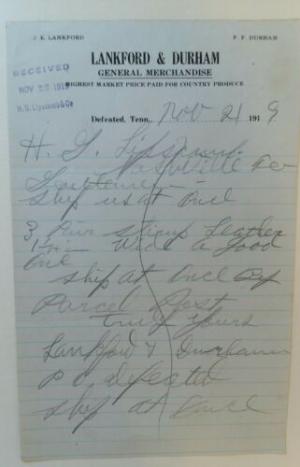 J. E. LANKFORD
P. F. DURHAM
LANKFORD & DURHAM
GENERAL MERCHANDISE
HIGHEST MARKET PRICE PAID FOR COUNTRY PRODUCE
RECEIVED
NOV 22 1919
H. G. Lipscomb & Co
Defeated, Tenn., Nov 21 1919
H. G. Lipscomb
Nashville
Gentlemen
Ship us at Oncl
3 Pair Leather
1 in Wide a good
One
Ship at Oncl By
Parcel Post
truly yours
Lankford & Durham
P O defeated
Ship at Oncl